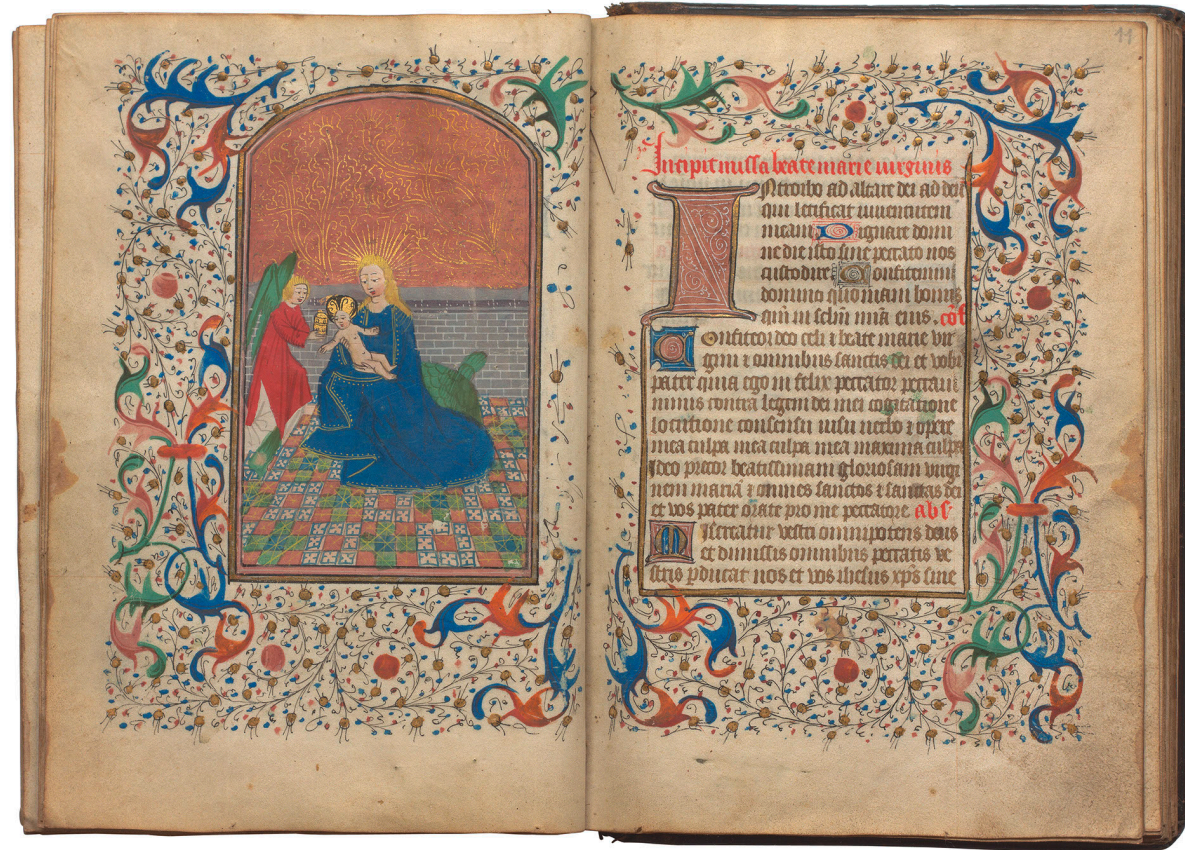 11
Incipit missa beate marie uirginis
INtroibo ad altare dei ad deū
qui letificat iuuentutem
meam Dignare domi
ne die isto sine peccato nos
custodire Confitemini
domino quoniam bonus
qm̄ in sclm̄ mīa eius . cōf
Confiteor deo celi ⁊ beate marie vir
gini ⁊ omnibus sanctis dei et vobi
pater quia ego in felix peccator peccaui
nimis contra legem dei mei cogitatione
locutione consensu uisu uerbo ⁊ opere
mea culpa mea culpa mea maxima culpa
Ideo precor beatissimam gloriosam uirgi
nem mariā ⁊ omnes sanctos ⁊ sanctas dei
et vos pater orate pro me peccatore . abs
Misereatur vestri omnipotens deus
et dimissis omnibus peccatis ve
stris ꝑducat nos et vos ihesus xp̄s sine